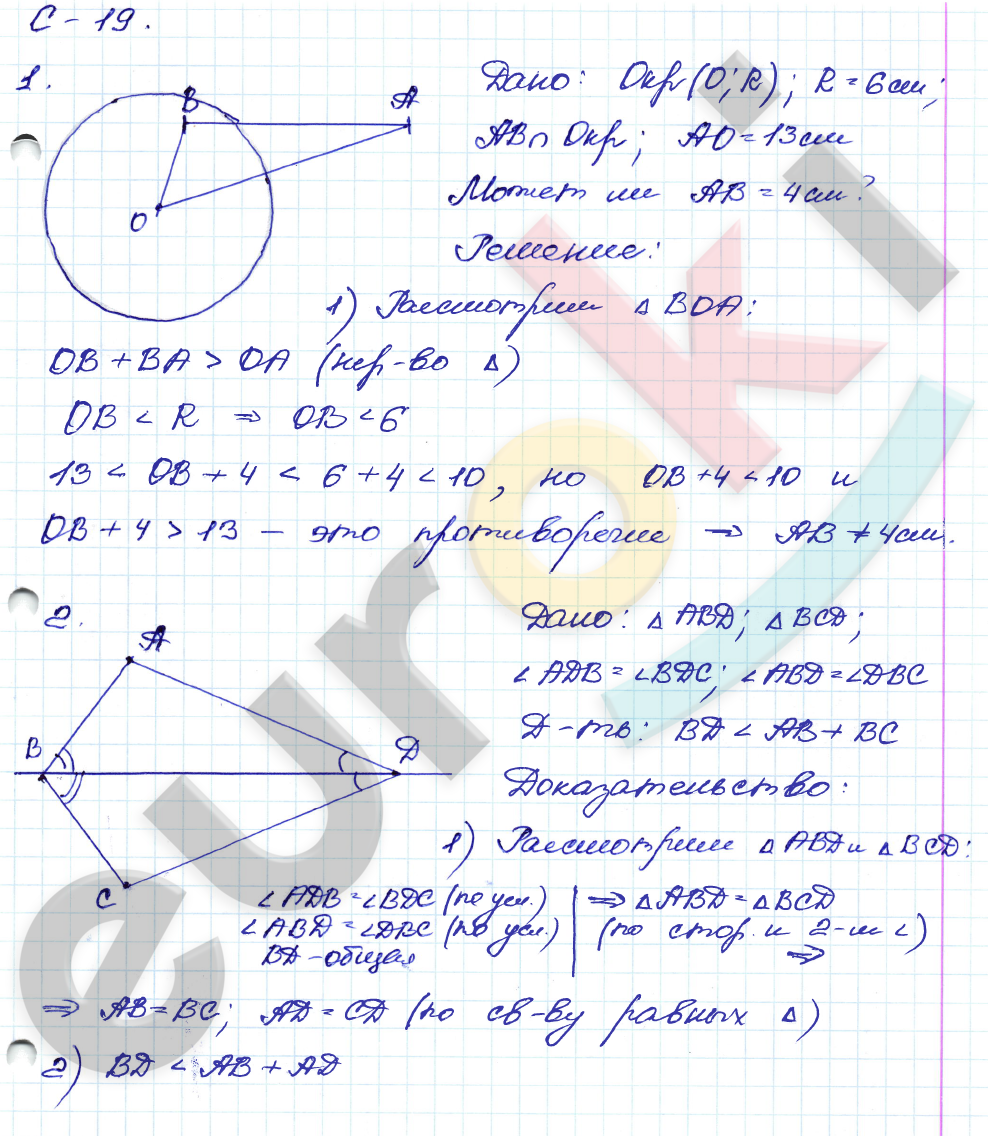 С-19.
1.
B
A
O
Дано: Окр(O; R); R = 6 см;
AB ∩ Окр; AO = 13 см
Может ли AB = 4 см?
Решение:
1) Рассмотрим Δ BOA:
OB + BA > OA (нер-во Δ)
OB < R ⇒ OB < 6
13 < OB + 4 < 6 + 4 < 10, но OB + 4 < 10 и
OB + 4 > 13 – это противоречие ⇒ AB ≠ 4 см.
2.
A
B
D
C
Дано: Δ ABD; Δ BCD;
∠ADB = ∠BDC; ∠ABD = ∠DBC
Д-ть: BD < AB + BC
Доказательство:
1) Рассмотрим Δ ABD и Δ BCD:
∠ADB = ∠BDC (по усл.) | ⇒ Δ ABD = Δ BCD
∠ABD = ∠DBC (по усл.) | (по стор. и 2-м ∠)
BD – общая | ⇒
⇒ AB = BC; AD = CD (по св-ву равных Δ)
2) BD < AB + AD
euroki